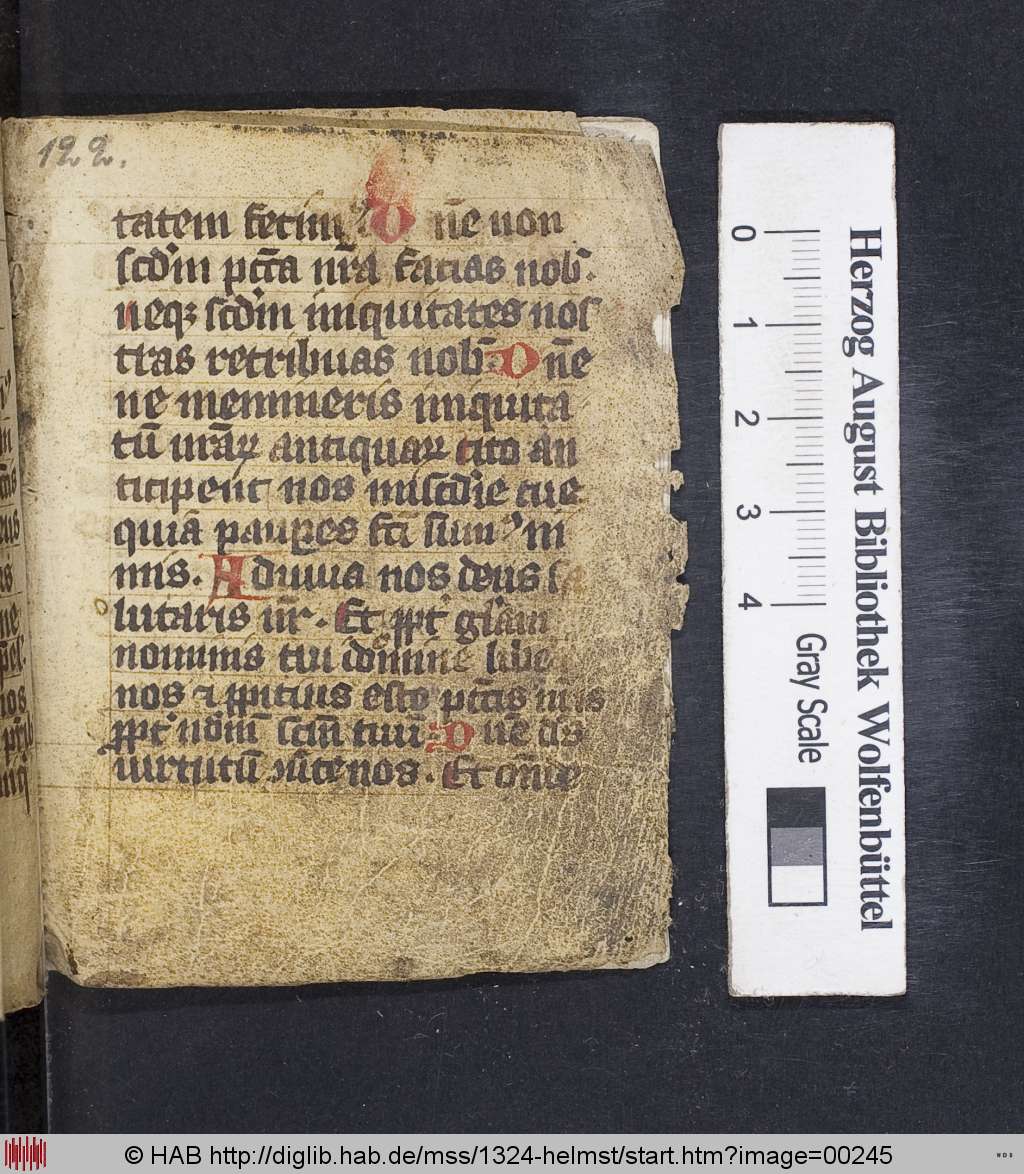 122.
tatem fecimꝰ. Dn̄e non
scd̄m pctā nr̄a facias nob̄.
neqꝫ scd̄m iniquitates nos
tras retribuas nob̄. Dn̄e
ne memineris iniquita
tū nr̄aꝝ antiquaꝝ cito an
ticipent nos mīscd̄ie tue
quia paupes fcī sumꝰ ni
mis. Adiuua nos deus sa
lutaris nr̄. Et ꝓpt̄ gl̄iam
nominis tui domine libera
nos ⁊ ꝓpitius esto pctīs nr̄is
ꝓpt̄ nom̄ scm̄ tuū. Dn̄e ds
uirtutū ɔu̅te nos. Et on̄de
Herzog August Bibliothek Wolfenbüttel
0 1 2 3 4
Gray Scale
© HAB http://diglib.hab.de/mss/1324-helmst/start.htm?image=00245
WDB